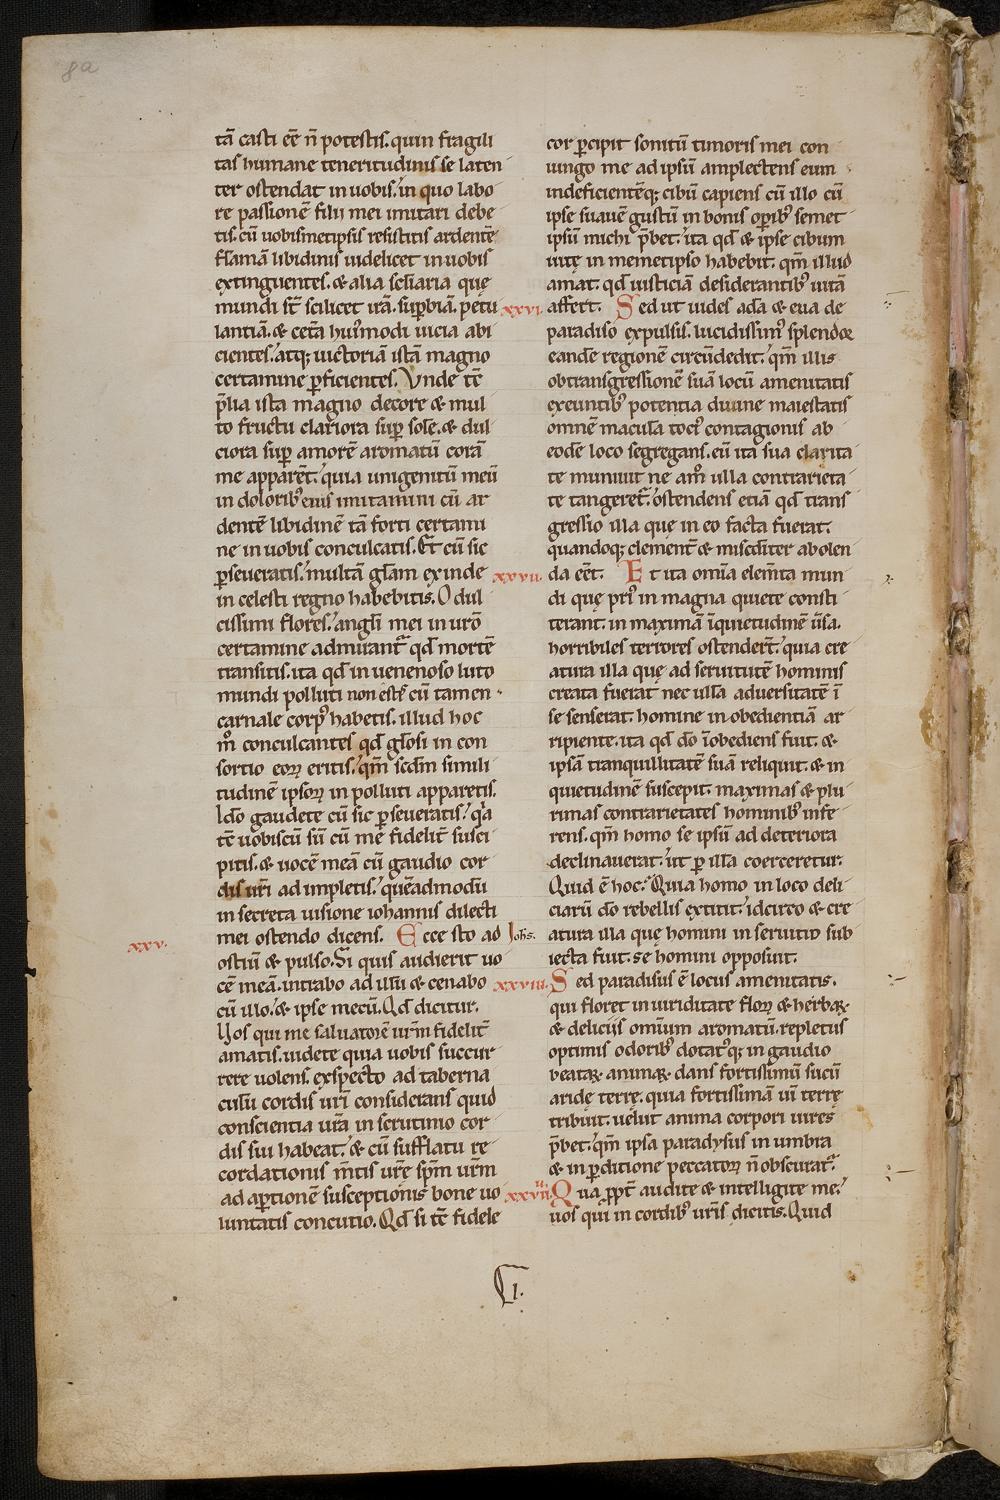 8a
tā casti eē n̄ potestis. quin fragili
tas humane teneritudinis se laten
ter ostendat in uobis. in quo labo
re passionē filii mei imitari debe
tis. cū uobismetipsis resistitis ardentē
flamā libidinis uidelicet in uobis
extinguentes. & alia sc̄liaria que
mundi st̄ scilicet irā. supbiā. petu
lantiā. & cetā hui᷒modi uicia abi
cientes. atq; uictoriā istā magno
certamine ꝑficientes. Vnde tē
p̄lia ista magno decore & mul
to fructu clariora suꝑ solē. & dul
ciora suꝑ amorē aromatū corā
me apparēt. quia unigenitū meū
in dolorib᷒ eius imitamini cū ar
dentē libidinē tā forti certami
ne in uobis conculcatis. Et cū sic
ꝑseueratis. multā gl̄am exinde
in celesti regno habebitis. O dul
cissimi flores. angl̄i mei in ur̄o
certamine admirant᷑ qd̄ mortē
transitis. ita qd̄ in uenenoso luto
mundi polluti non estis cū tamen
carnale corp᷒ habetis. illud hoc
m̊ conculcantes qd̄ gl̄osi in con
sortio eoꝝ eritis. qm̄ scd̄m simili
tudinē ipsoꝝ inpolluti apparetis.
Ido gaudete cū sic ꝑseueratis. q̓a
tē uobiscū sū cū me fidelit̄ susci
pitis. & uocē meā cū gaudio cor
dis ur̄i adimpletis. quēadmodū
in secreta uisione iohannis dilecti
mei ostendo dicens. Ecce sto ad Joh̄s.
xxv.
ostiū & pulso. Si quis audierit uo
cē meā. intrabo ad illū & cenabo
cū illo. & ipse mecū. Qd̄ dicitur.
Uos qui me saluatorē ur̄m fidelit̄
amatis. uidete quia uobis succur
rere uolens. exspecto ad taberna
culū cordis ur̄i considerans quid
conscientia ur̄a in scrutinio cor
dis sui habeat. & cū sufflatu re
cordationis m̄tis ur̄e spm̄ ur̄m
ad aꝑtionē susceptionis bone uo
luntatis concutio. Qd̄ si tē fidele
cor ꝑcipit sonitū timoris mei con
iungo me ad ipsū amplectens eum
indeficientēq; cibū capiens cū illo cū
ipse suauē gustū in bonis oꝑib᷒ semet
ipsū michi p̄bet. ita qd̄ & ipse cibum
uitę in memetipso habebit. qm̄ illud
amat. qd̄ iusticiā desiderantib᷒ uitā
xxvi. affert. Sed ut uides adā & eua de
paradiso expulsis. lucidissim᷒ splendor
eandē regionē circūdedit. qm̄ illis
ob transgressionē suā locū amenitatis
exeuntib᷒ potentia diuine maiestatis
omnē maculā toci᷒ contagionis ab
eodē loco segregans. eū ita sua clarita
te muniuit ne am̊ ulla contrarieta
te tangeret᷑. ostendens etiā qd̄ trans
gressio illa que in eo facta fuerat.
quandoq; clement̄ & misc̄diter abolen
xxvii. da eēt. Et ita omīa elem̄ta mun
di quę pri᷒ in magna quiete consti
terant. in maximā īquietudinē ūsa.
horribiles terrores ostendert̄. quia cre
atura illa quę ad seruitutē hominis
creata fuerat nec ullā aduersitatē ī
se senserat. homine inobedientiā ar
ripiente. ita qd̄ dō īobediens fuit. &
ipsā tranquillitatē suā reliquit. & in
quietudinē suscepit. maximas & plu
rimas contrarietates hominib᷒ infe
rens. qm̄ homo se ipsū ad deteriora
declinauerat. ut ꝑ illā coerceretur.
Quid ē hoc. Quia homo in loco deli
ciarū dō rebellis extitit. idcirco & cre
atura illa que homini in seruitio sub
iecta fuit. se homini opposuit.
xxviii. Sed paradisus ē locus amenitatis.
qui floret in uiriditate floꝝ & herbaꝝ
& deliciis omnium aromatū. repletus
optimis odorib᷒ dotat᷒q; in gaudio
beataꝝ animaꝝ. dans fortissimū sucū
aridę terrę. quia fortissimā uī terrę
tribuit. uelut anima corpori uires
p̄bet. qm̄ ipsa paradysus in umbra
& in ꝑditione peccatoꝝ n̄ obscurat᷑.
xxviiii. Qua ꝓpt̄ audite & intelligite me.
uos qui in cordib᷒ ur̄is dicitis. Quid